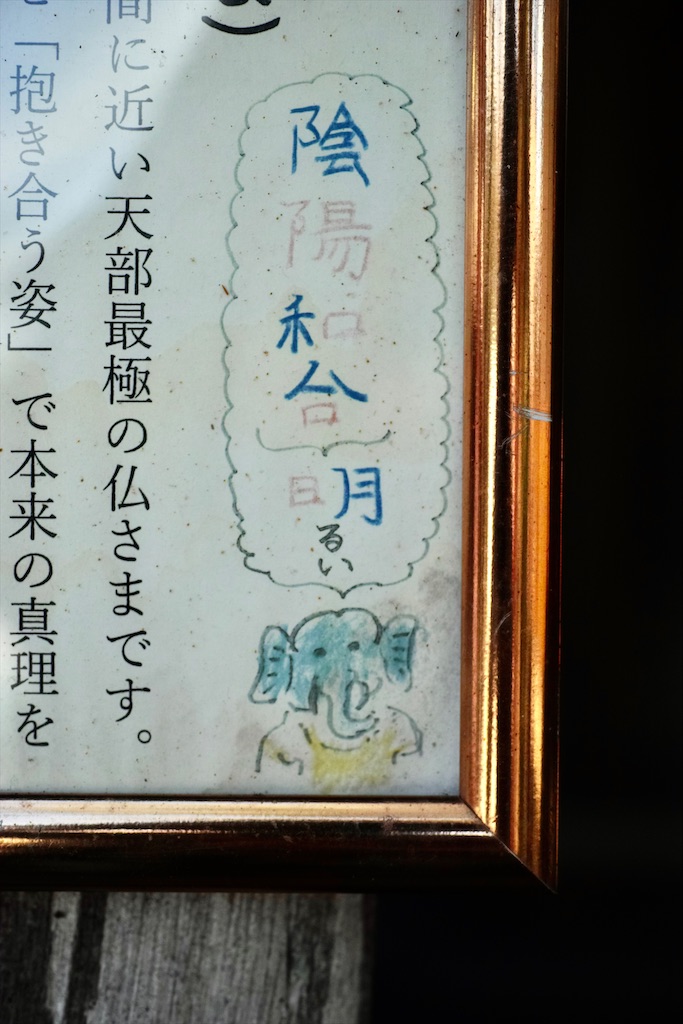 陰陽和合
明るい
間に近い天部最極の仏さまです。
「抱き合う姿」で本来の真理を